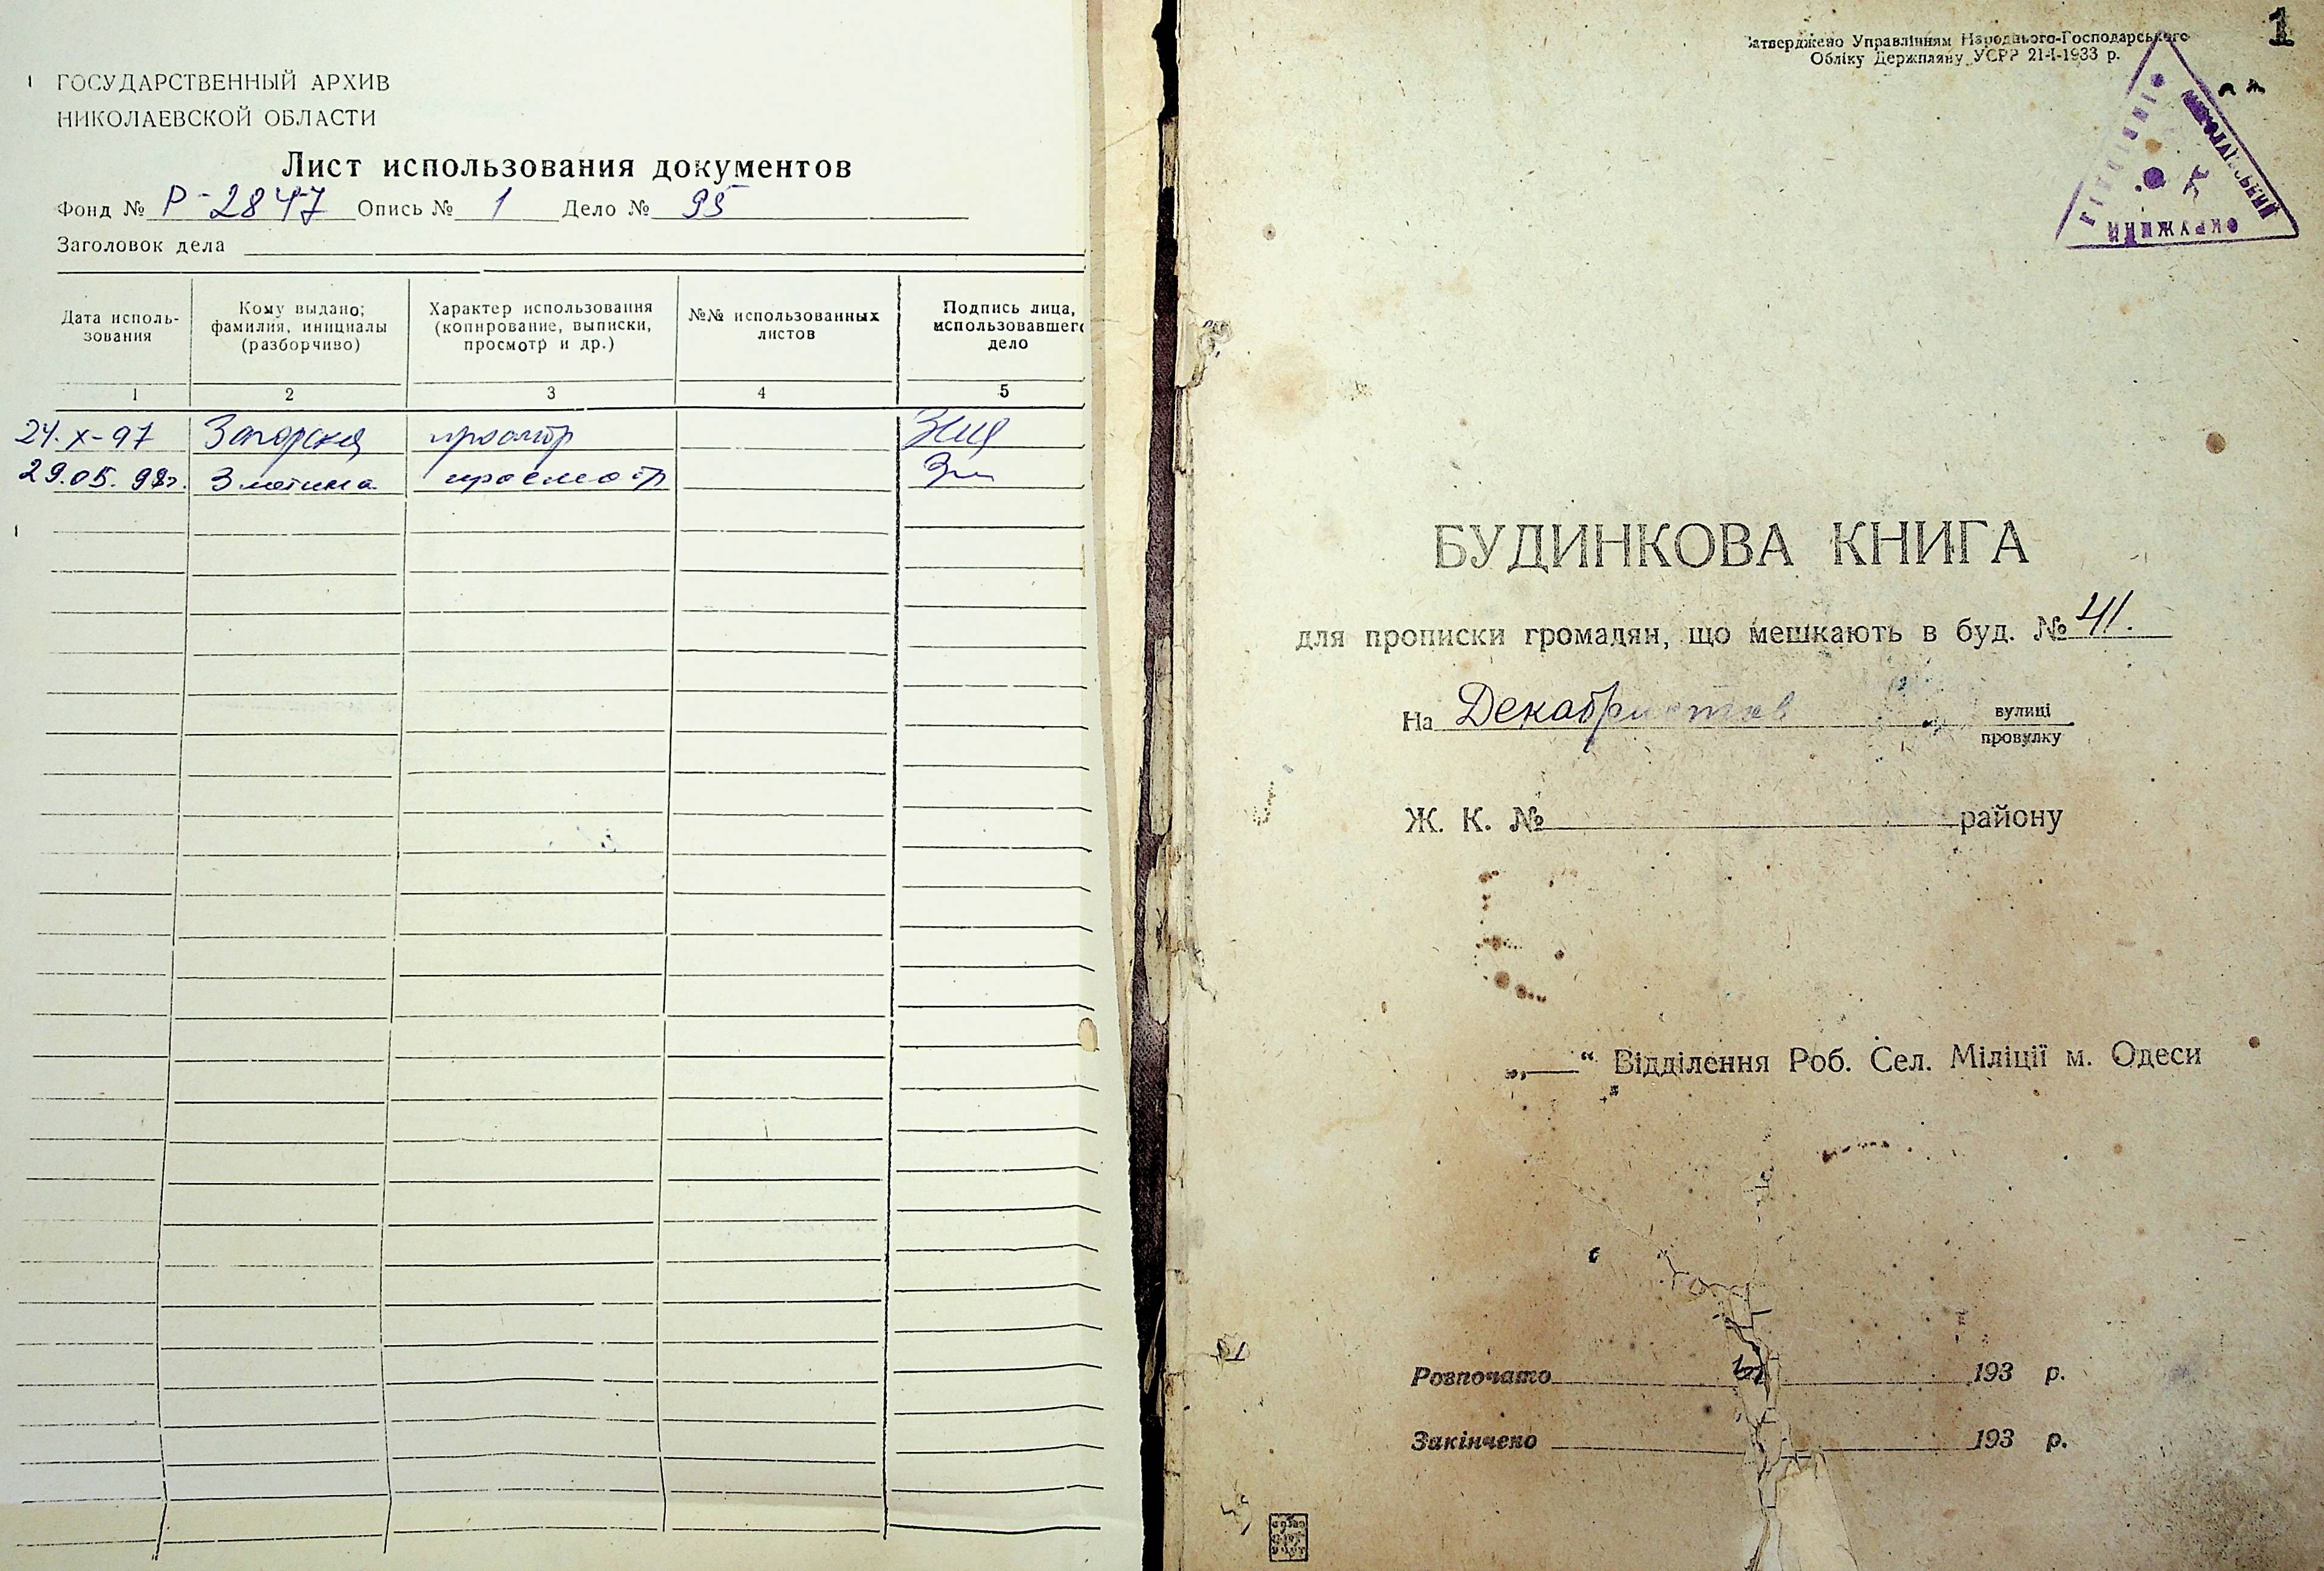 ГОСУДАРСТВЕННЫЙ АРХИВ
НИКОЛАЕВСКОЙ ОБЛАСТИ
Лист использования документов
Фонд № Р-2847 Опись № 1 Дело № 95
Заголовок дела
Дата исполь-
зования
Кому выдано;
фамилия, инициалы
(разборчиво)
Характер использования
(копирование, выписки,
просмотр и др.)
№№ использованных
листов
Подпись лица,
использовавшего
дело
1 2 3 4 5
24.X-97 просмотр
29.05.98г. просмотр
1
Затверджено Управлінням Народнього-Господарського
Обліку Держпляну УСРР 21-I-1933 р.
ОКРУЖНИЙ
БУДИНКОВА КНИГА
для прописки громадян, що мешкають в буд. № 41.
На Декабристов вулиці
провулку
Ж. К. № району
„ “ Відділення Роб. Сел. Міліції м. Одеси
Розпочато 193 р.
Закінчено 193 р.